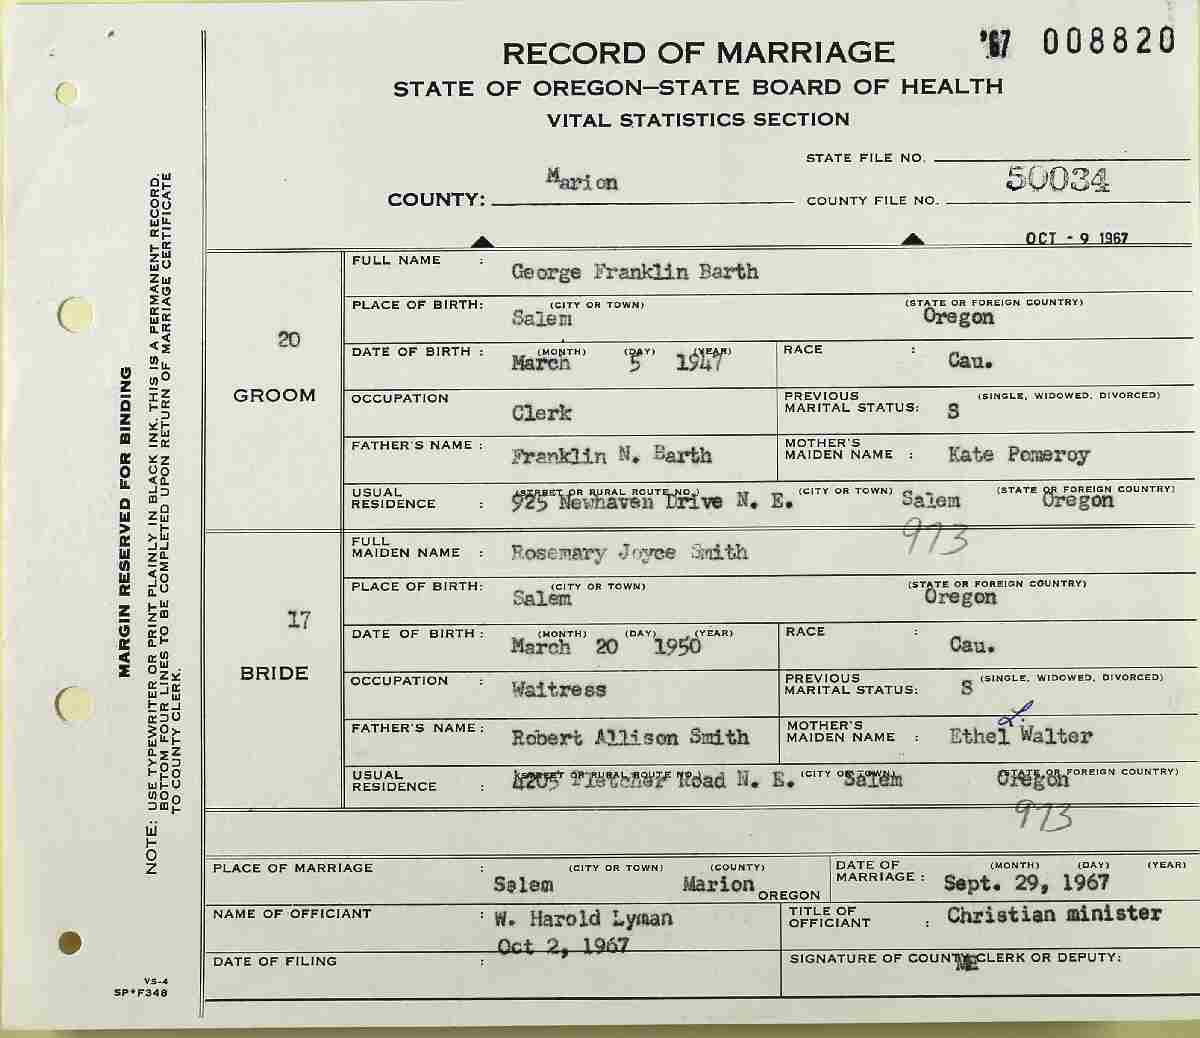 '67 008820
RECORD OF MARRIAGE
STATE OF OREGON—STATE BOARD OF HEALTH
VITAL STATISTICS SECTION
STATE FILE NO.
COUNTY: Marion
COUNTY FILE NO. 50034
OCT - 9 1967
MARGIN RESERVED FOR BINDING
NOTE: USE TYPEWRITER OR PRINT PLAINLY IN BLACK INK. THIS IS A PERMANENT RECORD.
BOTTOM FOUR LINES TO BE COMPLETED UPON RETURN OF MARRIAGE CERTIFICATE
TO COUNTY CLERK.
20
GROOM
FULL NAME : George Franklin Barth
PLACE OF BIRTH: (CITY OR TOWN) Salem (STATE OR FOREIGN COUNTRY) Oregon
DATE OF BIRTH : (MONTH) (DAY) (YEAR) March 5 1947 RACE : Cau.
OCCUPATION Clerk PREVIOUS MARITAL STATUS: (SINGLE, WIDOWED, DIVORCED) S
FATHER'S NAME : Franklin N. Barth MOTHER'S MAIDEN NAME : Kate Pomeroy
USUAL RESIDENCE : (STREET OR RURAL ROUTE NO.) 925 Newhaven Drive N. E. (CITY OR TOWN) Salem (STATE OR FOREIGN COUNTRY) Oregon
973
17
BRIDE
FULL MAIDEN NAME : Rosemary Joyce Smith
PLACE OF BIRTH: (CITY OR TOWN) Salem (STATE OR FOREIGN COUNTRY) Oregon
DATE OF BIRTH : (MONTH) (DAY) (YEAR) March 20 1950 RACE : Cau.
OCCUPATION : Waitress PREVIOUS MARITAL STATUS: (SINGLE, WIDOWED, DIVORCED) S
FATHER'S NAME : Robert Allison Smith MOTHER'S MAIDEN NAME : Ethel L. Walter
USUAL RESIDENCE : (STREET OR RURAL ROUTE NO.) 4205 Fletcher Road N. E. (CITY OR TOWN) Salem (STATE OR FOREIGN COUNTRY) Oregon
973
PLACE OF MARRIAGE : (CITY OR TOWN) Salem (COUNTY) Marion OREGON DATE OF MARRIAGE : (MONTH) (DAY) (YEAR) Sept. 29, 1967
NAME OF OFFICIANT : W. Harold Lyman TITLE OF OFFICIANT : Christian minister
Oct 2, 1967
DATE OF FILING : SIGNATURE OF COUNTY CLERK OR DEPUTY:
VS-4
SP*F348